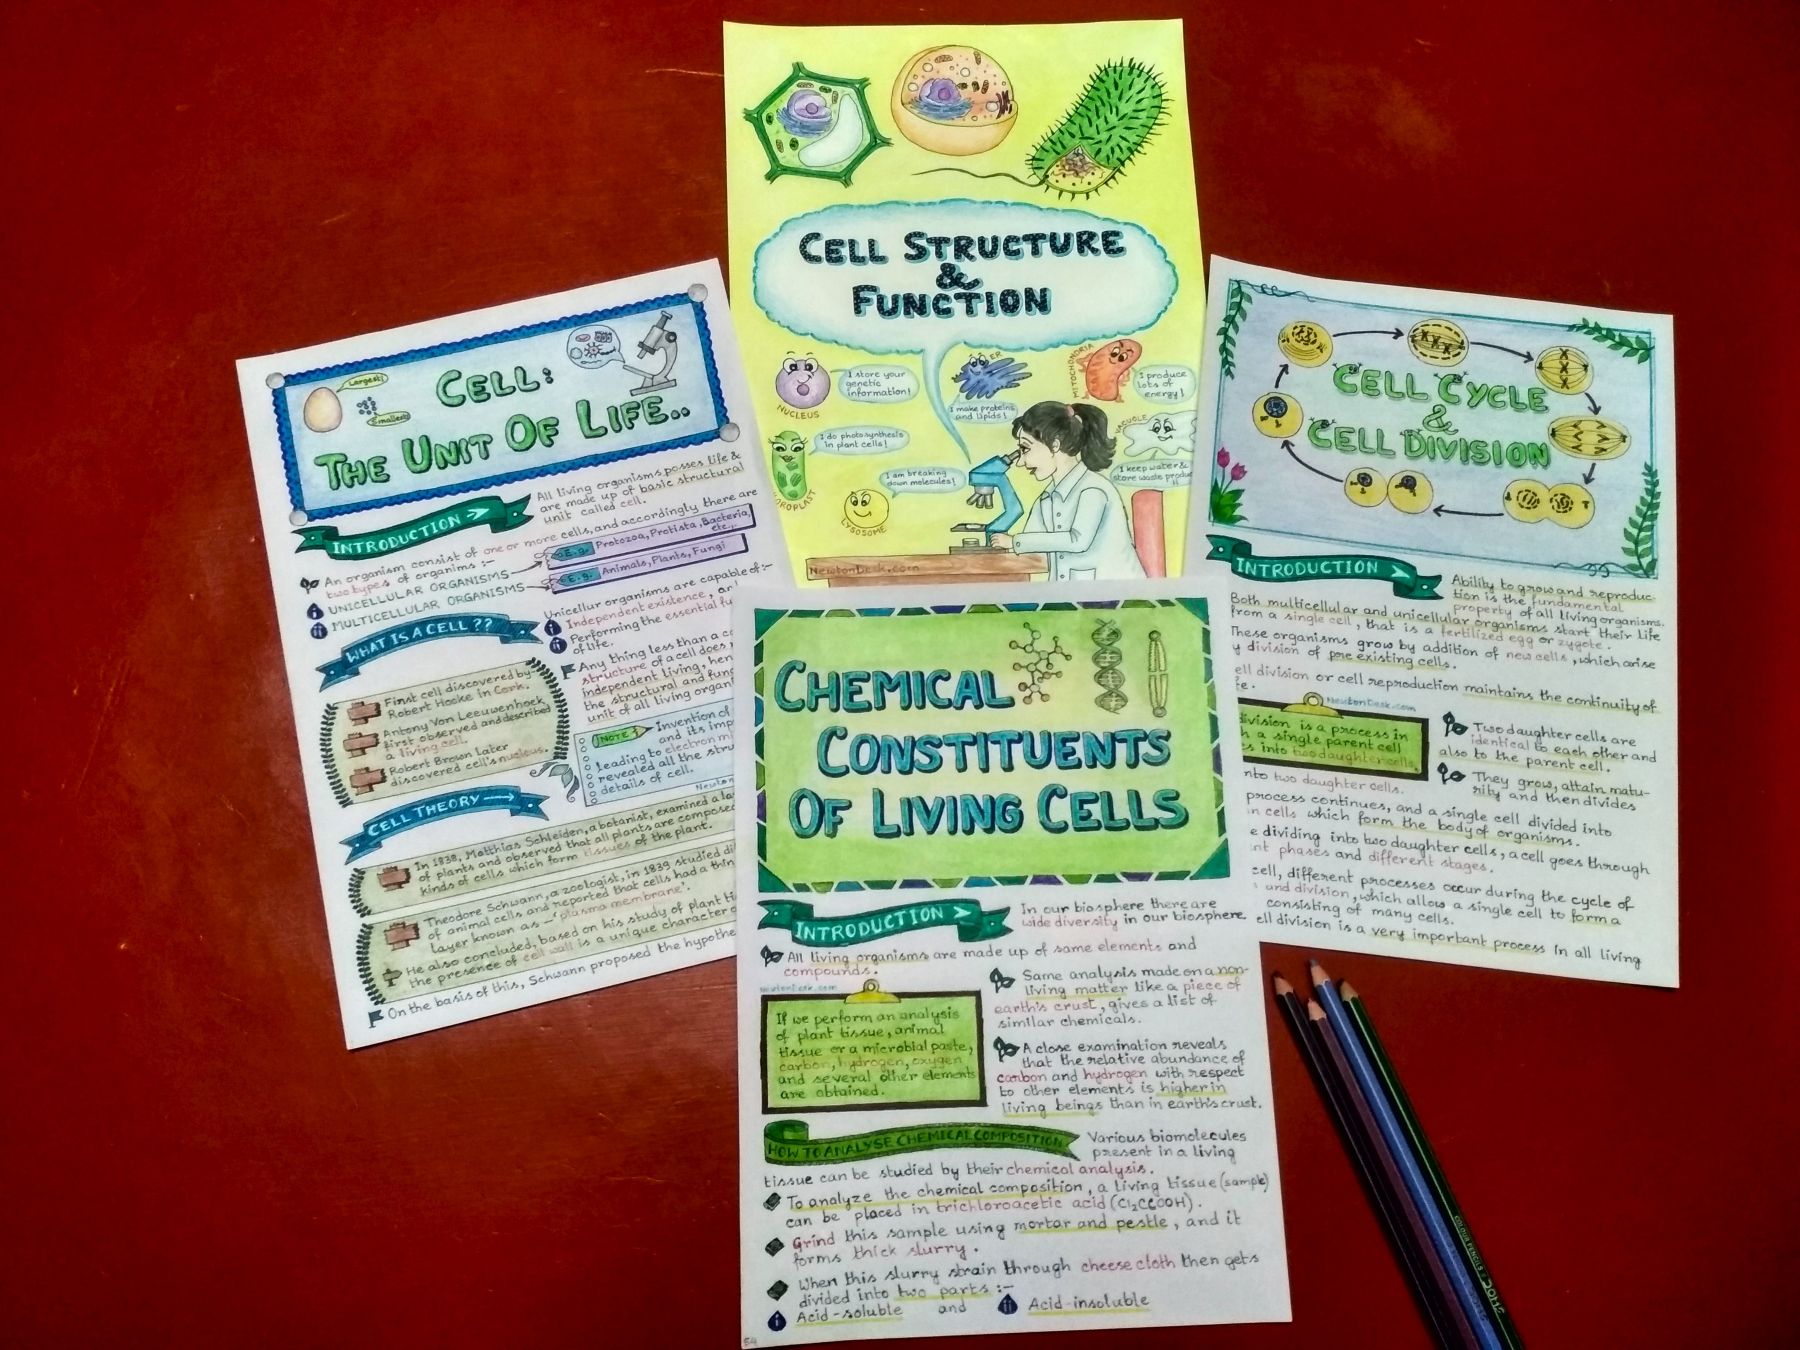 CELL STRUCTURE
&
FUNCTION
NUCLEUS
I store your
genetic
information!
ER
I make proteins
and lipids!
MITOCHONDRIA
I produce
lots of
energy!
I do photosynthesis
in plant cells!
I am breaking
down molecules!
LYSOSOME
VACUOLE
I keep water &
store waste produc
NewtonDesk.com
Largest!
Smallest!
CELL:
THE UNIT OF LIFE..
INTRODUCTION
All living organisms posses life &
are made up of basic structural
unit called cell.
An organism consist of one or more cells, and accordingly there are
two types of organims :-
i UNICELLULAR ORGANISMS
E.g. Protozoa, Protista, Bacteria,
etc.,.
ii MULTICELLULAR ORGANISMS
E.g. Animals, Plants, Fungi
WHAT IS A CELL ??
Unicellur organisms are capable of :-
i Independent existence, an
ii Performing the essential fu
of life.
Any thing less than a co
structure of a cell does
independent living, hen
the structural and func
unit of all living organi
First cell discovered by
Robert Hooke in Cork.
Antony Von Leeuwenhoek
first observed and described
a living cell.
Robert Brown later
discovered cell's nucleus.
NOTE
Invention of
and its imp
leading to electron mi
revealed all the stru
details of cell.
Newton
CELL THEORY
In 1838, Matthias Schleiden, a botanist, examined a la
of plants and observed that all plants are composed
kinds of cells which form tissues of the plant.
Theodore Schwann, a zoologist, in 1839 studied di
of animal cells and reported that cells had a thin
layer known as 'plasma membrane'.
He also concluded, based on his study of plant ti
the presence of cell wall is a unique character o
On the basis of this, Schwann proposed the hypothe
CELL CYCLE
&
CELL DIVISION
INTRODUCTION
Ability to grow and reproduc-
tion is the fundamental
property of all living organisms.
Both multicellular and unicellular organisms start their life
from a single cell, that is a fertilized egg or zygote.
These organisms grow by addition of new cells, which arise
y division of pre existing cells.
ell division or cell reproduction maintains the continuity of
fe.
NewtonDesk.com
division is a process in
h a single parent cell
es into two daughter cells.
Two daughter cells are
identical to each other and
also to the parent cell.
They grow, attain matu-
rity and then divides
nto two daughter cells.
process continues, and a single cell divided into
n cells which form the body of organisms.
e dividing into two daughter cells, a cell goes through
nt phases and different stages.
cell, different processes occur during the cycle of
and division, which allow a single cell to form a
consisting of many cells.
ell division is a very important process in all living
CHEMICAL
CONSTITUENTS
OF LIVING CELLS
INTRODUCTION
In our biosphere there are
wide diversity in our biosphere.
All living organisms are made up of same elements and
compounds.
newtonDesk.com
If we perform an analysis
of plant tissue, animal
tissue or a microbial paste,
carbon, hydrogen, oxygen
and several other elements
are obtained.
Same analysis made on a non-
living matter like a piece of
earth's crust, gives a list of
similar chemicals.
A close examination reveals
that the relative abundance of
carbon and hydrogen with respect
to other elements is higher in
living beings than in earth's crust.
HOW TO ANALYSE CHEMICAL COMPOSITION
Various biomolecules
present in a living
tissue can be studied by their chemical analysis.
To analyze the chemical composition, a living tissue (sample)
can be placed in trichloroacetic acid (Cl₂CCOOH).
Grind this sample using mortar and pestle, and it
forms thick slurry.
When this slurry strain through cheese cloth then gets
divided into two parts :-
i Acid-soluble and ii Acid-insoluble
54
COLOUR PENCILS
DOMS